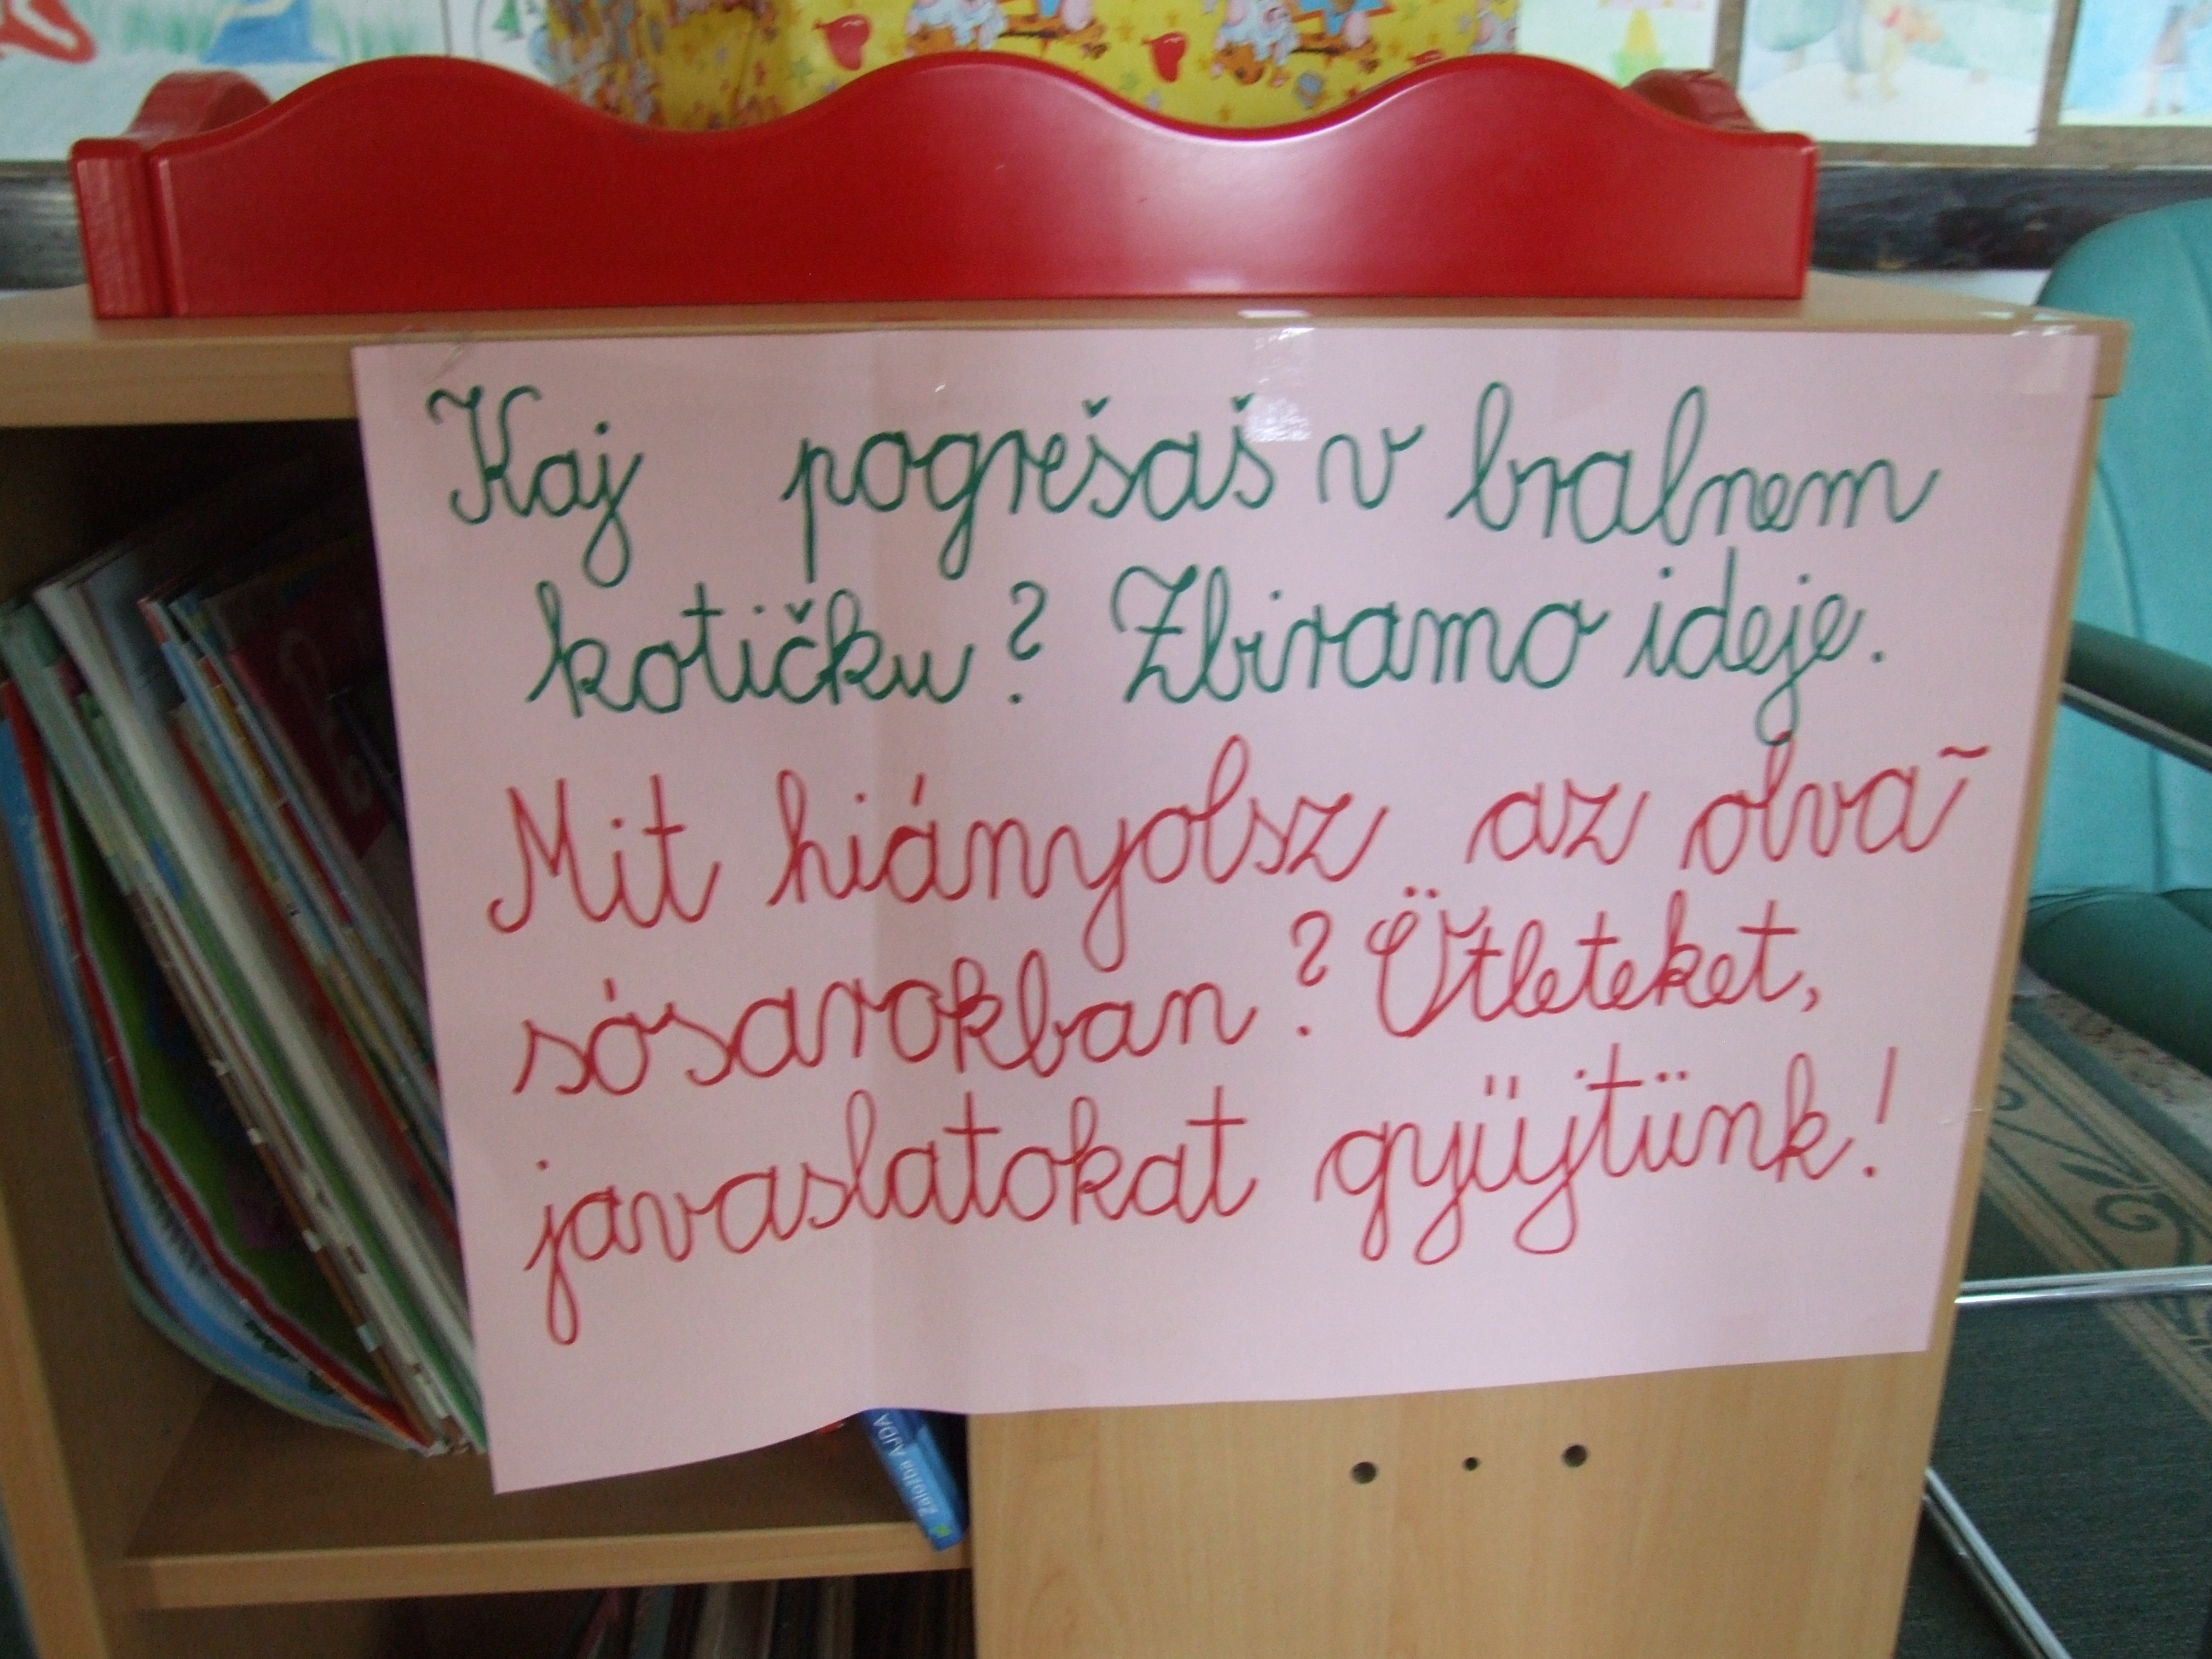 Kaj pogrešaš v bralnem
kotičku? Zbiramo ideje.
Mit hiányolsz az olva-
sósarokban? Ötleteket,
javaslatokat gyűjtünk!
Založba AJDA